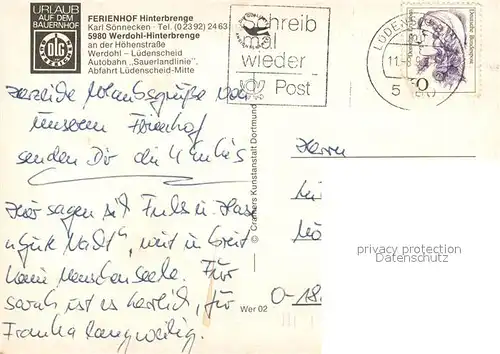 URLAUB
AUF DEM
BAUERNHOF
DLG
FERIENHOF Hinterbrenge
Karl Sönnecken · Tel. (0 23 92) 24 63
5980 Werdohl-Hinterbrenge
an der Höhenstraße
Werdohl – Lüdenscheid
Autobahn „Sauerlandlinie",
Abfahrt Lüdenscheid-Mitte
Schreib
mal
wieder
Post
Deutsche Bundespost
Herzliche Urlaubsgrüße von
unserem Ferienhof
senden Dir die 4
Hier sagen sich Fuchs u. Hase
„gute Nacht", weit u. breit
keine Menschenseele. Für
Sarah ist es herrlich, für
Franka langweilig.
© Cramers Kunstanstalt Dortmund
Wer 02
Herrn
O-18
privacy protection
Datenschutz